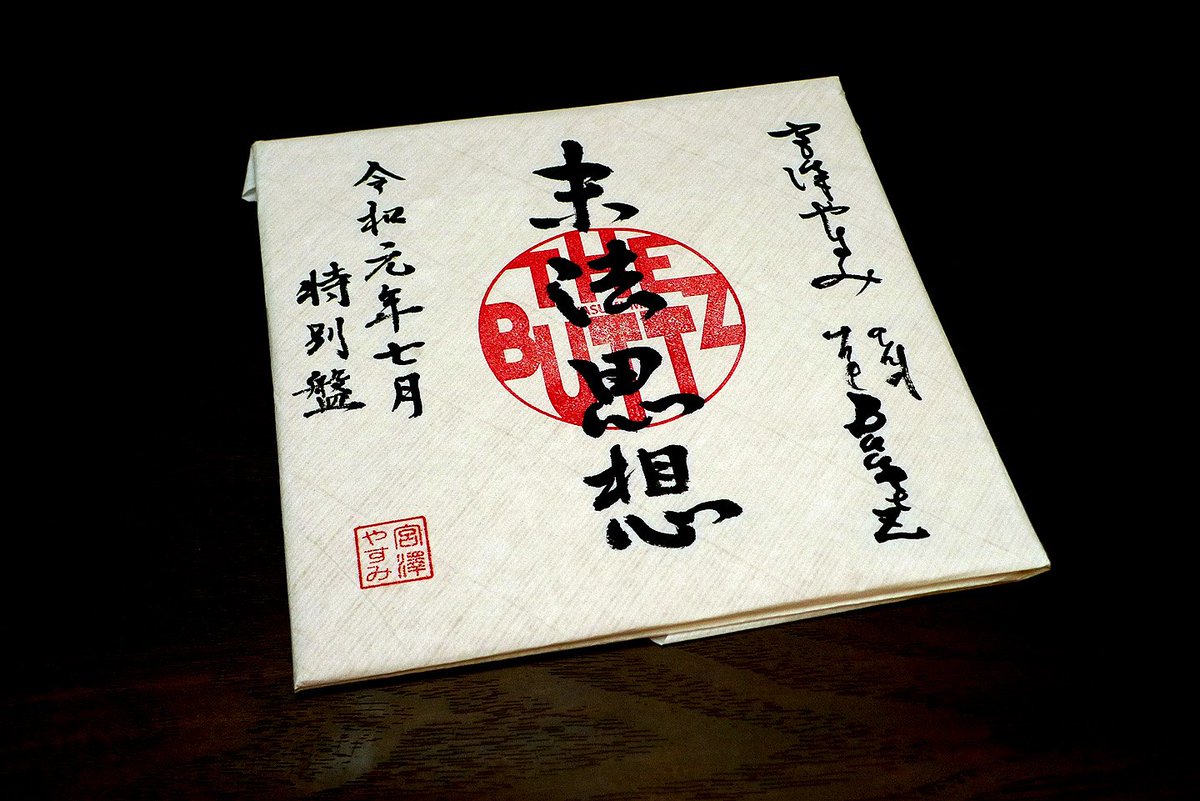 宮澤やすみ
and
the Buttz
末法思想
THE
BUTTZ
令和元年七月
特別盤
宮澤
やすみ